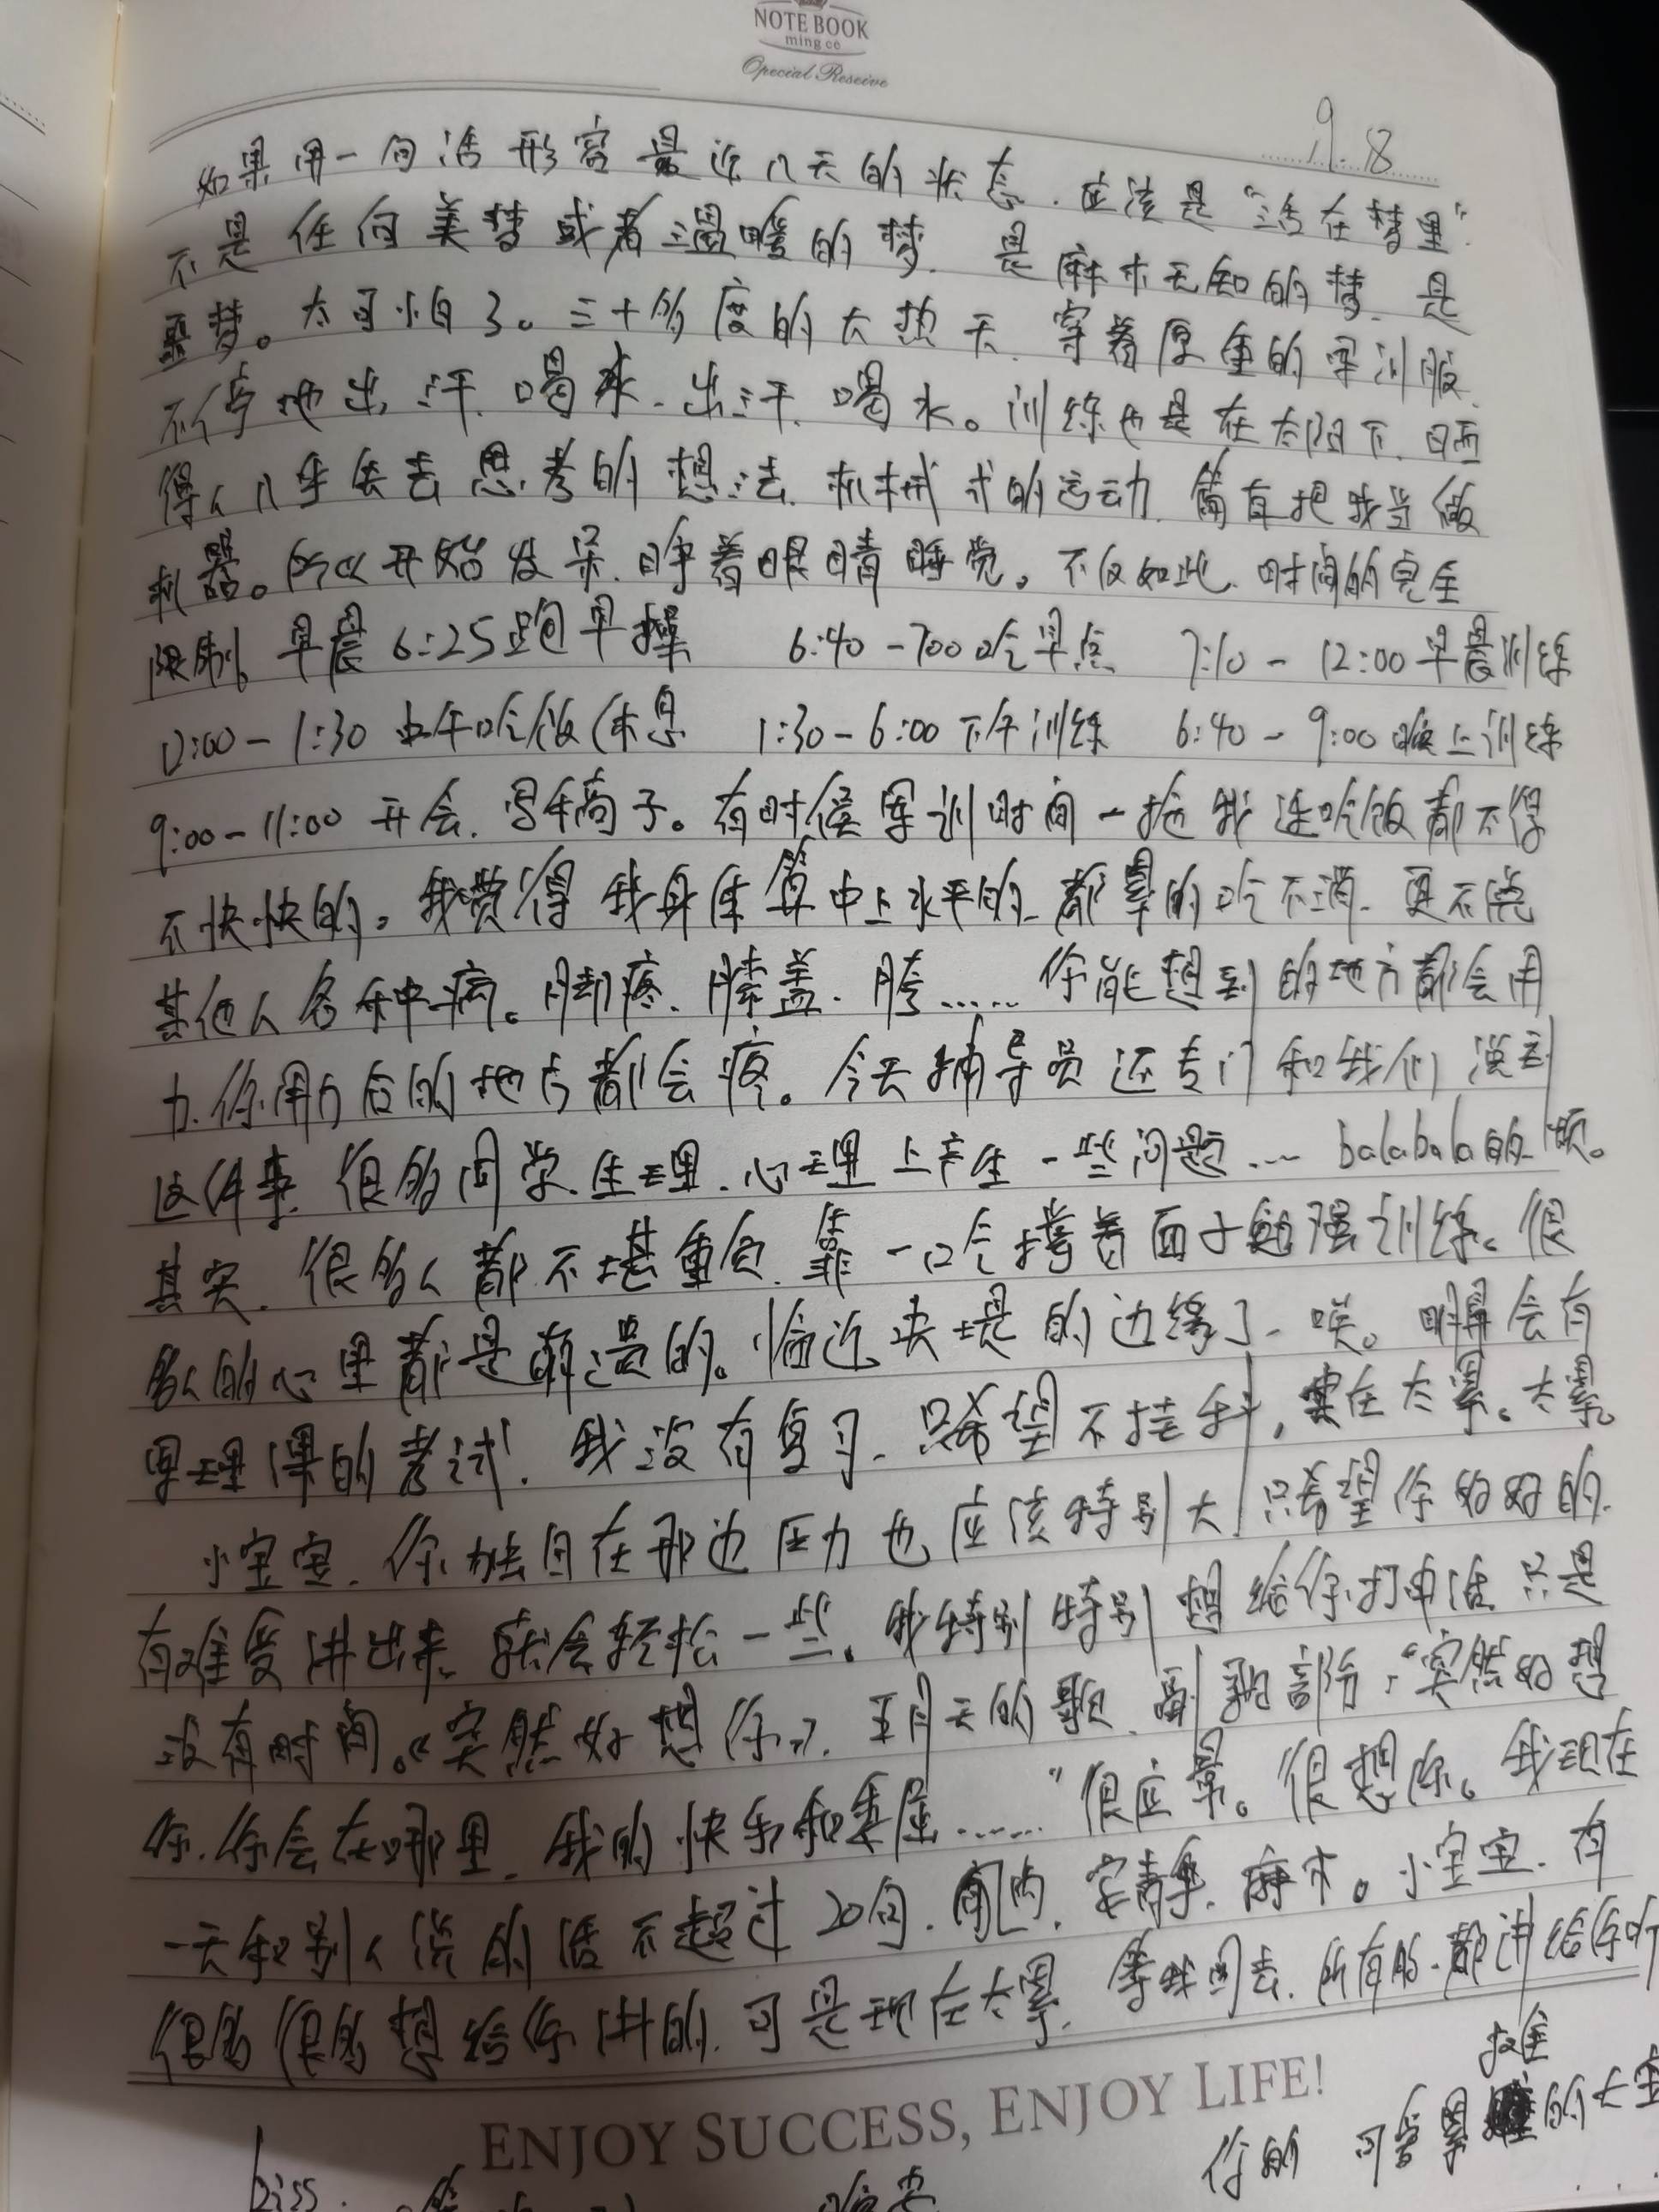 NOTE BOOK
ming ce
Special Reseive
9.18
如果用一句话形容最近几天的状态.应该是“活在梦里”
不是任何美梦或者温暖的梦.是麻木无知的梦.是
噩梦。太可怕了。三十多度的大热天.穿着厚重的军训服
不停地出汗.喝水.出汗.喝水。训练也是在太阳下.晒
得人几乎失去思考的想法.机械式的运动.简直把我当做
机器。所以开始发呆.睁着眼睛睡觉。不仅如此.时间的完全
限制。早晨6:25跑早操 6:40-7:00吃早点 7:10-12:00早晨训练
12:00-1:30中午吃饭(休息 1:30-6:00下午训练 6:40-9:00晚上训练
9:00-11:00开会.写稿子。有时候军训时间一拖我连吃饭都不得
不快快的。我觉得我身体算中上水平的.都累的吃不消.更不说
其他人各种病。脚疼.膝盖.胯……你能想到的地方都会用
力.你用力后的地方都会疼。今天辅导员还专门和我们谈到
这件事.很多同学.生理.心理上产生一些问题… balabala的一顿。
其实.很多人都不堪重负.靠一口气撑着面子勉强训练。很
多人的心里都是崩溃的。临近决堤的边缘了.唉。明早会有
原理课的考试.我没有复习.只希望不挂科,实在太累。太累。
小宝宝.你独自在那边压力也应该特别大.只希望你好好的.
有难受讲出来.就会轻松一些。我特别特别想给你打电话.只是
没有时间。《突然好想你》.五月天的歌.副歌部分:“突然好想
你.你会在哪里.我的快乐和委屈……”很应景。很想你。我现在
一天和别人说的话不超过20句.安静.麻木。小宝宝.有
很多很多想给你讲的.可是现在太累.等我回去.所有的.都讲给你听
ENJOY SUCCESS, ENJOY LIFE!
你的 可爱累的大宝
biss.
晚安